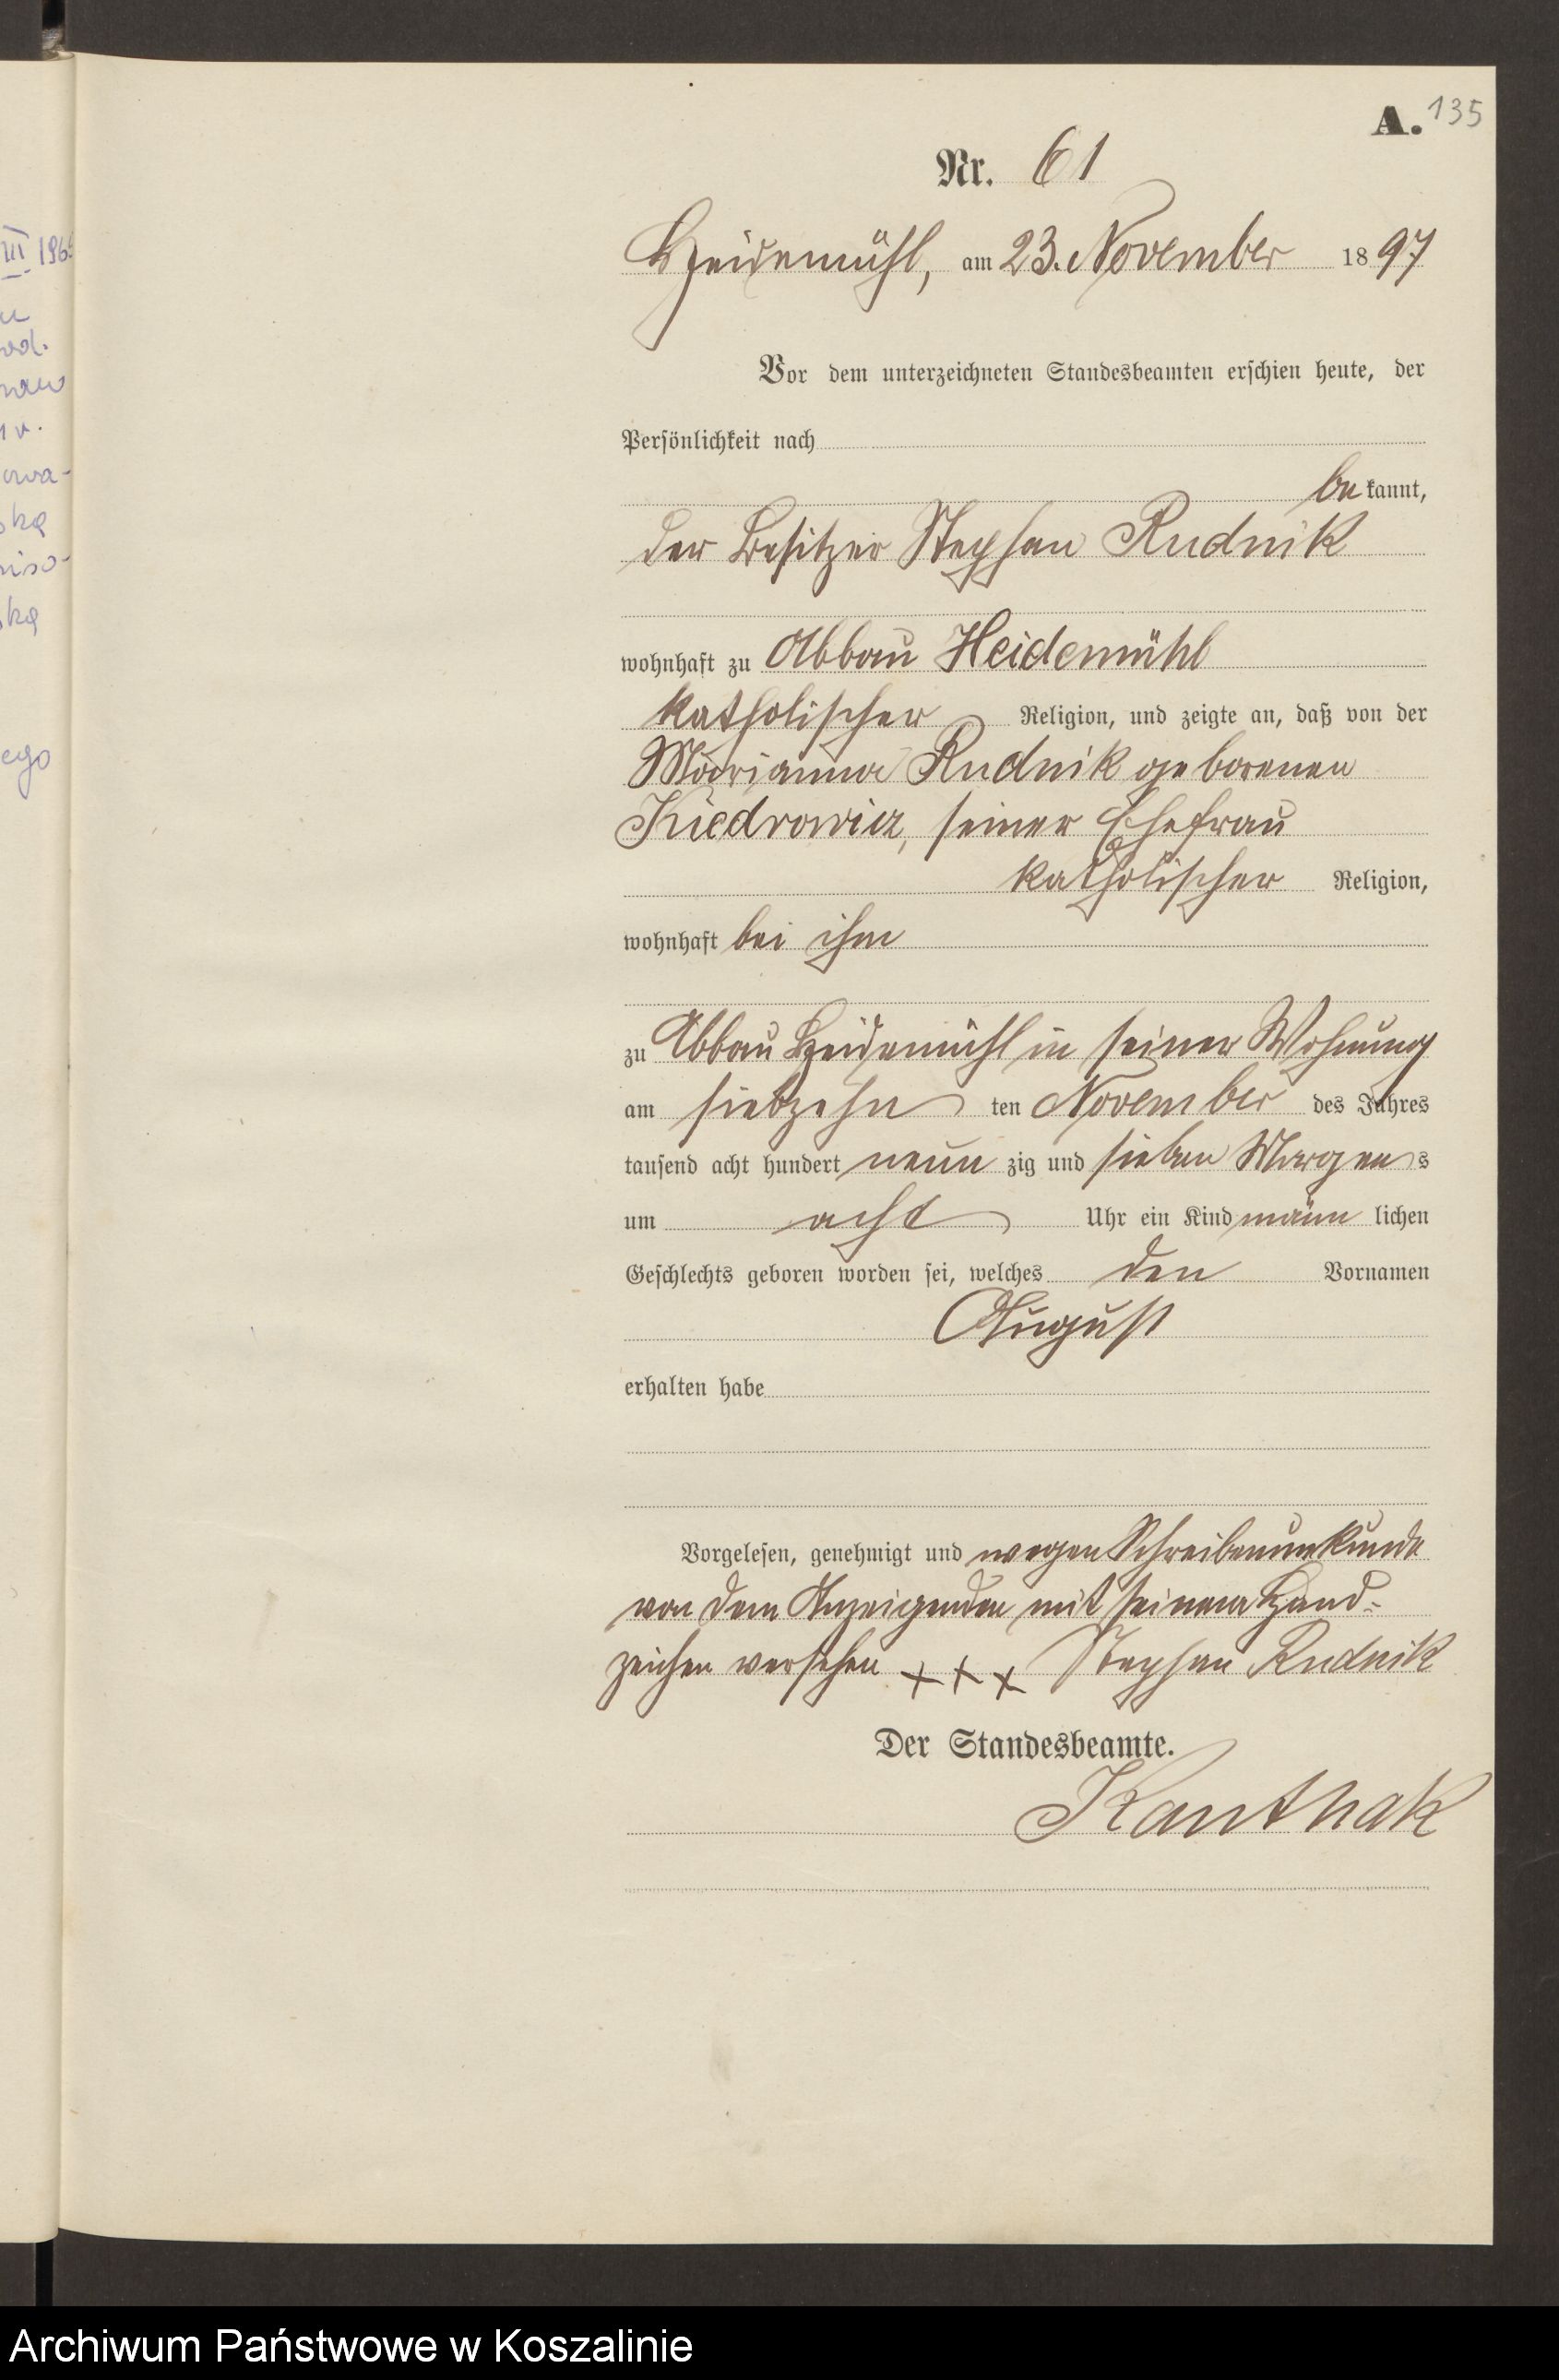 A. 135
Nr. 61
Heidemühl, am 23. November 1897
Vor dem unterzeichneten Standesbeamten erschien heute, der
Persönlichkeit nach
bekannt,
der Besitzer Stephan Rudnik
wohnhaft zu Abbau Heidemühl
katholischer Religion, und zeigte an, daß von der
Marianna Rudnik geborenen
Kiedrowicz, seiner Ehefrau
katholischer Religion,
wohnhaft bei ihm
zu Abbau Heidemühl in seiner Wohnung
am siebzehn ten November des Jahres
tausend acht hundert neun zig und sieben Morgens
um acht Uhr ein Kind männ lichen
Geschlechts geboren worden sei, welches den Vornamen
August
erhalten habe
Vorgelesen, genehmigt und wegen Schreibenunkunde
von dem Anzeigenden mit seinem Hand-
zeichen versehen +++ Stephan Rudnik
Der Standesbeamte.
Kanthak
III 196
u
od.
now
1 r.
owa-
ską
niso-
ką
ego
Archiwum Państwowe w Koszalinie